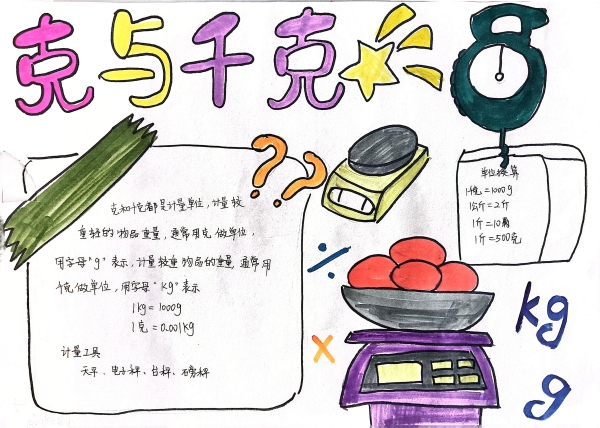 克与千克
??
克和千克都是计量单位,计量较
重较的物品重量,通常用克做单位,
用字母"g"表示,计量较重物品的重量,通常用
千克做单位,用字母"kg"表示
1kg=1000g
1克=0.001kg
计量工具
天平、电子秤、台秤、磅秤
单位换算
1千克=1000g
1公斤=2斤
1斤=10两
1斤=500克
÷
×
kg
g